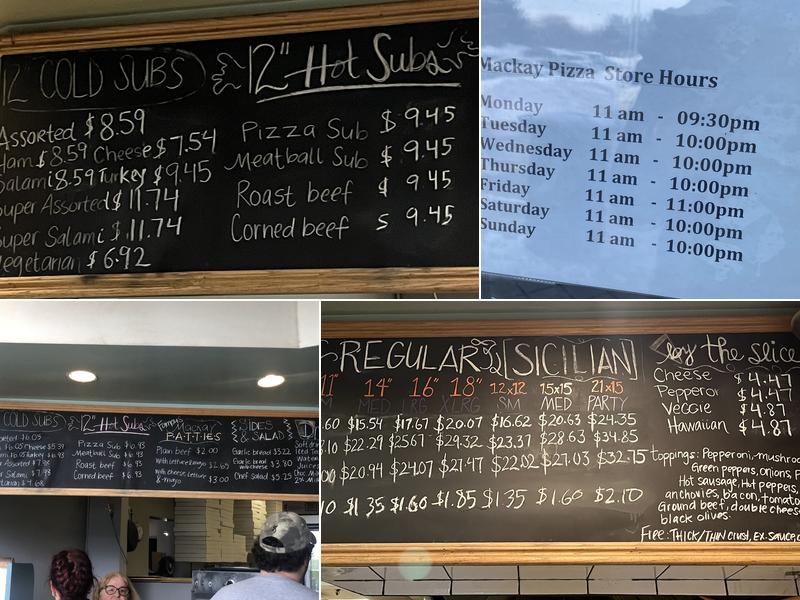 12" COLD SUBS
Assorted $8.59
Ham $8.59 Cheese $7.54
Salami 8.59 Turkey $9.45
Super Assorted $11.74
Super Salami $11.74
Vegetarian $6.92
12" Hot Subs
Pizza Sub $9.45
Meatball Sub $9.45
Roast beef $9.45
Corned beef $9.45
Mackay Pizza Store Hours
Monday 11 am - 09:30pm
Tuesday 11 am - 10:00pm
Wednesday 11 am - 10:00pm
Thursday 11 am - 10:00pm
Friday 11 am - 11:00pm
Saturday 11 am - 10:00pm
Sunday 11 am - 10:00pm
COLD SUBS
12" Hot Subs
Pizza Sub $6.93
Meatball Sub $6.93
Roast beef $6.93
Corned beef $6.93
Mackay
PATTIES
Plain beef $2.00
with cheese lettuce
& mayo $3.00
SIDES
& SALAD
Garlic bread $3.22
Garlic bread
with cheese $3.80
Chef Salad $5.25
REGULAR SICILIAN
11" 14" 16" 18" 12x12 15x15 21x15
MED LRG XLRG SM MED PARTY
.60 $15.54 $17.67 $20.07 $16.62 $20.63 $24.35
.10 $22.29 $25.67 $29.32 $23.37 $28.63 $34.85
$20.94 $24.07 $27.47 $22.02 $27.03 $32.75
.10 $1.35 $1.60 $1.85 $1.35 $1.60 $2.10
by the slice
Cheese $4.47
Pepperoni $4.47
Veggie $4.87
Hawaiian $4.87
Toppings: Pepperoni, mushroo
Green peppers, onions, P
Hot sausage, Hot peppers,
anchovies, bacon, tomato
Ground beef, double cheese
black olives.
Free: THICK/THIN crust, Ex. sauce,